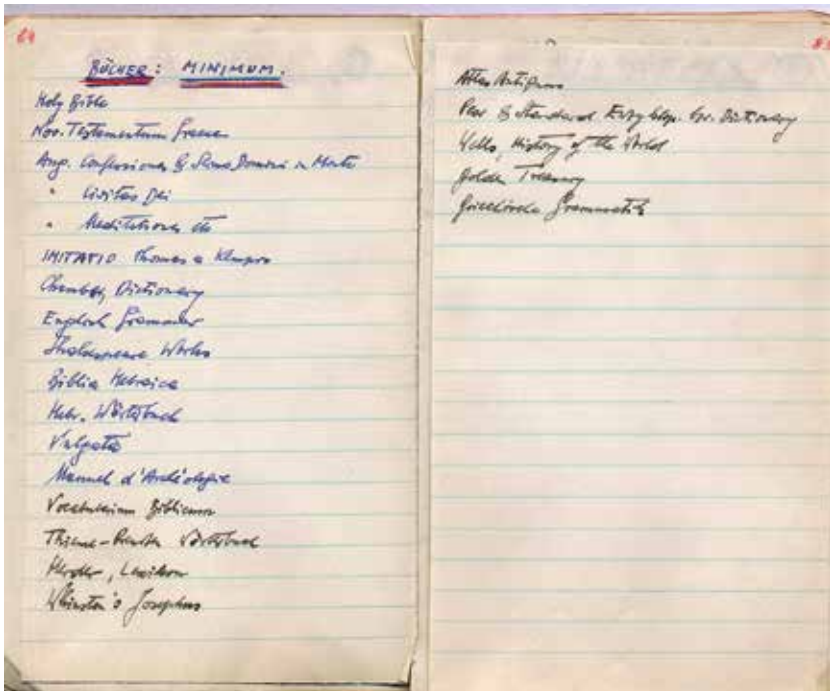 64
BÜCHER: MINIMUM.
Holy Bible
Nov. Testamentum Graece
Aug. Confessiones & Sermo Domini in Monte
" Civitas Dei
" Meditationes etc
IMITATIO Thomas a Kempis
Chambers Dictionary
English Grammar
Shakespeare Works
Biblia Hebraica
Hebr. Wörterbuch
Vulgata
Manuel d'Archéologie
Vocabularium Biblicum
Thieme-Preusser Wörterbuch
Herder, Lexikon
Whiston's Josephus
Atlas Antiquus
Pear's Standard Dictionary
Wells, History of the World
Golden Treasury
Griechische Grammatik